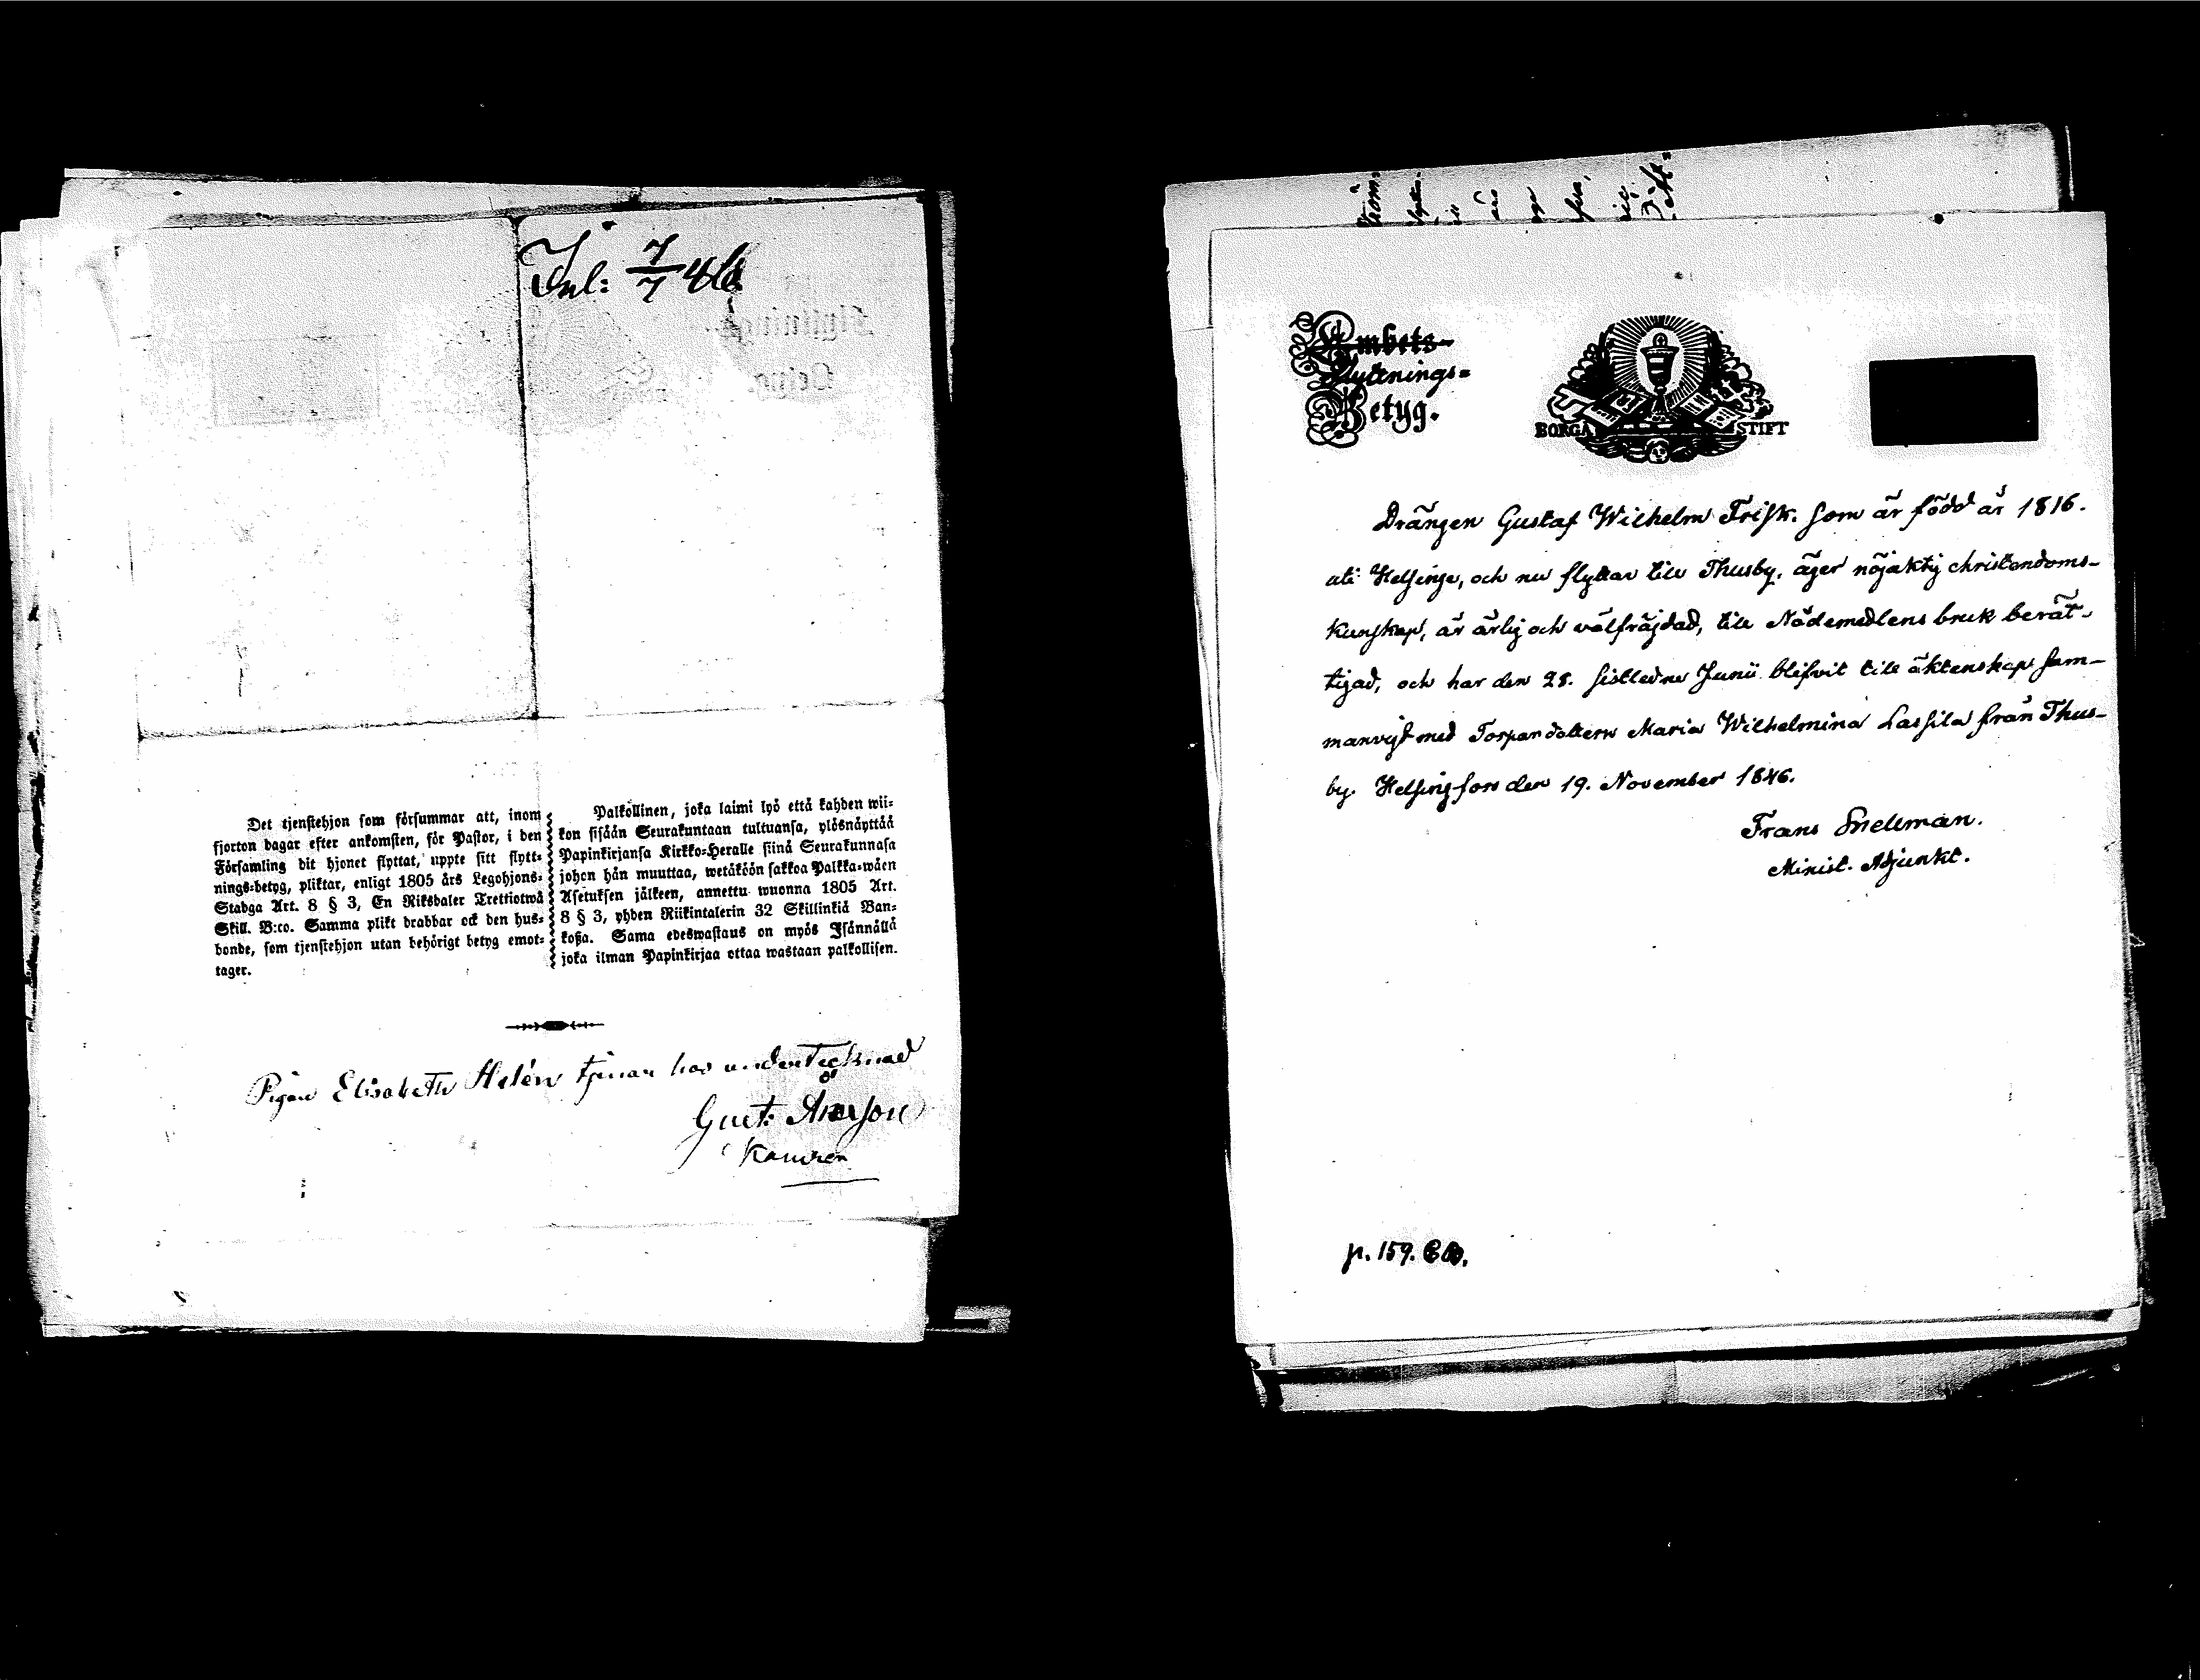 Inl: 7/7 46
Det tjenstehjon som försummar att, inom
fjorton dagar efter ankomsten, för Pastor, i den
Församling dit hjonet flyttat, uppte sitt flytt-
nings-betyg, pliktar, enligt 1805 års Legohjons-
Stadga Art. 8 § 3, En Riksdaler Trettiotwå
Skill. B:co. Samma plikt drabbar ock den hus-
bonde, som tjenstehjon utan behörigt betyg emot-
tager.
Palkollinen, joka laimi lyö että kahden wii-
kon sisään Seurakuntaan tultuansa, ylösnäyttää
Papinkirjansa Kirkko-Heralle siinä Seurakunnasa
johon hän muuttaa, wetäköön sakkoa Palkka-wäen
Asetuksen jälkeen, annettu wuonna 1805 Art.
8 § 3, yhden Riikintalerin 32 Skillinkiä Ban-
koßa. Sama edeswastaus on myös Isännällä
joka ilman Papinkirjaa ottaa wastaan palkollisen.
Pigan Elisabeth Helén tjenar hos undertecknad
Gust:
Ämbets-
Flyttnings-
Betyg.
BORGÅ STIFT
Drängen Gustaf Wilhelm Frisk. som är född år 1816.
uti Helsinge, och nu flyttar till Thusby, äger nöjaktig christendoms-
kunskap, är ärlig och välfräjdad, till Nådemedlens bruk berät-
tigad, och har den 28. sistledne Junii blifvit till äktenskap sam-
manvigd med Torpardottern Maria Wilhelmina Lassila från Thus-
by. Helsingfors den 19. November 1846.
Frans Snellman.
Minist. Adjunkt.
p. 159.